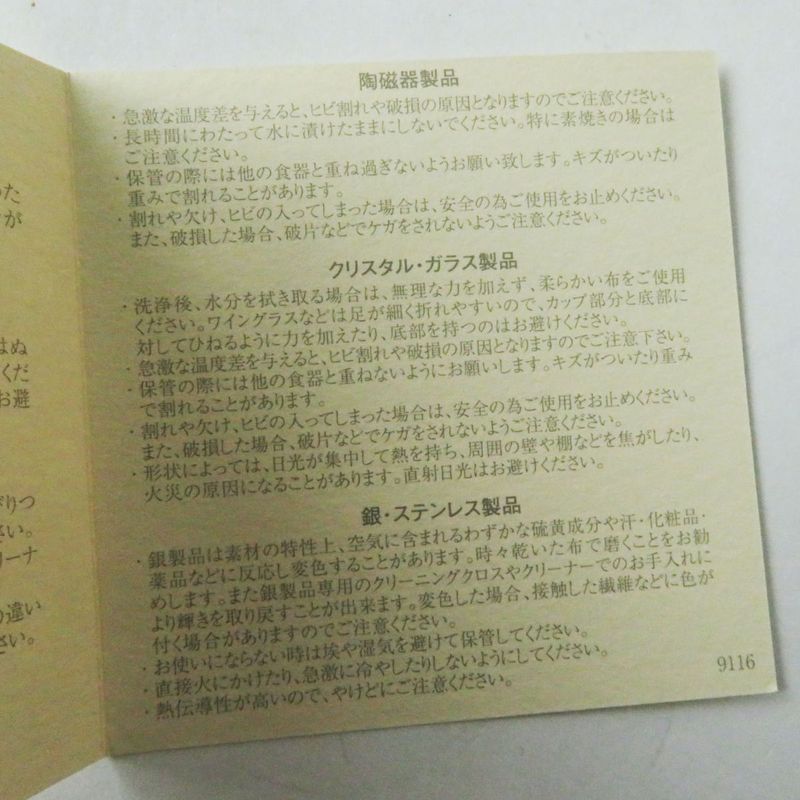 った
が
はぬ
くだ
お避
がりつ
さい。
リーナ
の違い
さい。
陶磁器製品
・急激な温度差を与えると、ヒビ割れや破損の原因となりますのでご注意ください。
・長時間にわたって水に漬けたままにしないでください。特に素焼きの場合は
ご注意ください。
・保管の際には他の食器と重ね過ぎないようお願い致します。キズがついたり
重みで割れることがあります。
・割れや欠け、ヒビの入ってしまった場合は、安全の為ご使用をお止めください。
また、破損した場合、破片などでケガをされないようご注意ください。
クリスタル・ガラス製品
・洗浄後、水分を拭き取る場合は、無理な力を加えず、柔らかい布をご使用
ください。ワイングラスなどは足が細く折れやすいので、カップ部分と底部に
対してひねるように力を加えたり、底部を持つのはお避けください。
・急激な温度差を与えると、ヒビ割れや破損の原因となりますのでご注意下さい。
・保管の際には他の食器と重ねないようにお願いします。キズがついたり重み
で割れることがあります。
・割れや欠け、ヒビの入ってしまった場合は、安全の為ご使用をお止めください。
また、破損した場合、破片などでケガをされないようご注意ください。
・形状によっては、日光が集中して熱を持ち、周囲の壁や棚などを焦がしたり、
火災の原因になることがあります。直射日光はお避けください。
銀・ステンレス製品
・銀製品は素材の特性上、空気に含まれるわずかな硫黄成分や汗・化粧品・
薬品などに反応し変色することがあります。時々乾いた布で磨くことをお勧
めします。また銀製品専用のクリーニングクロスやクリーナーでのお手入れに
より輝きを取り戻すことが出来ます。変色した場合、接触した繊維などに色が
付く場合がありますのでご注意ください。
・お使いにならない時は埃や湿気を避けて保管してください。
・直接火にかけたり、急激に冷やしたりしないようにしてください。
・熱伝導性が高いので、やけどにご注意ください。
9116